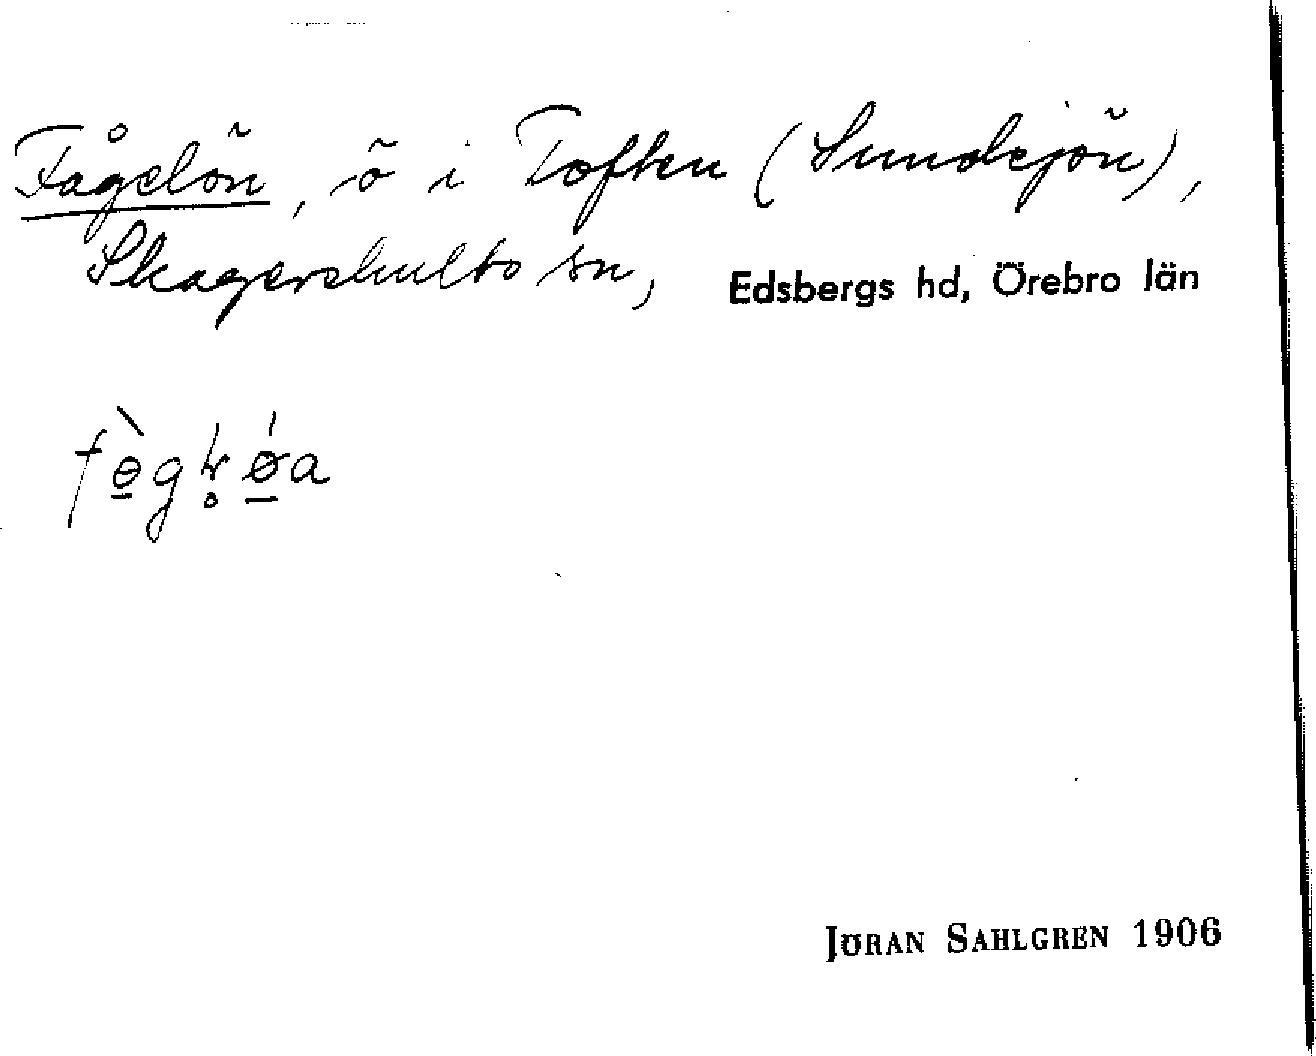 Fågelön, ö i Toften (Sundsjön),
Skagershults sn, Edsbergs hd, Örebro län
JÖRAN SAHLGREN 1906